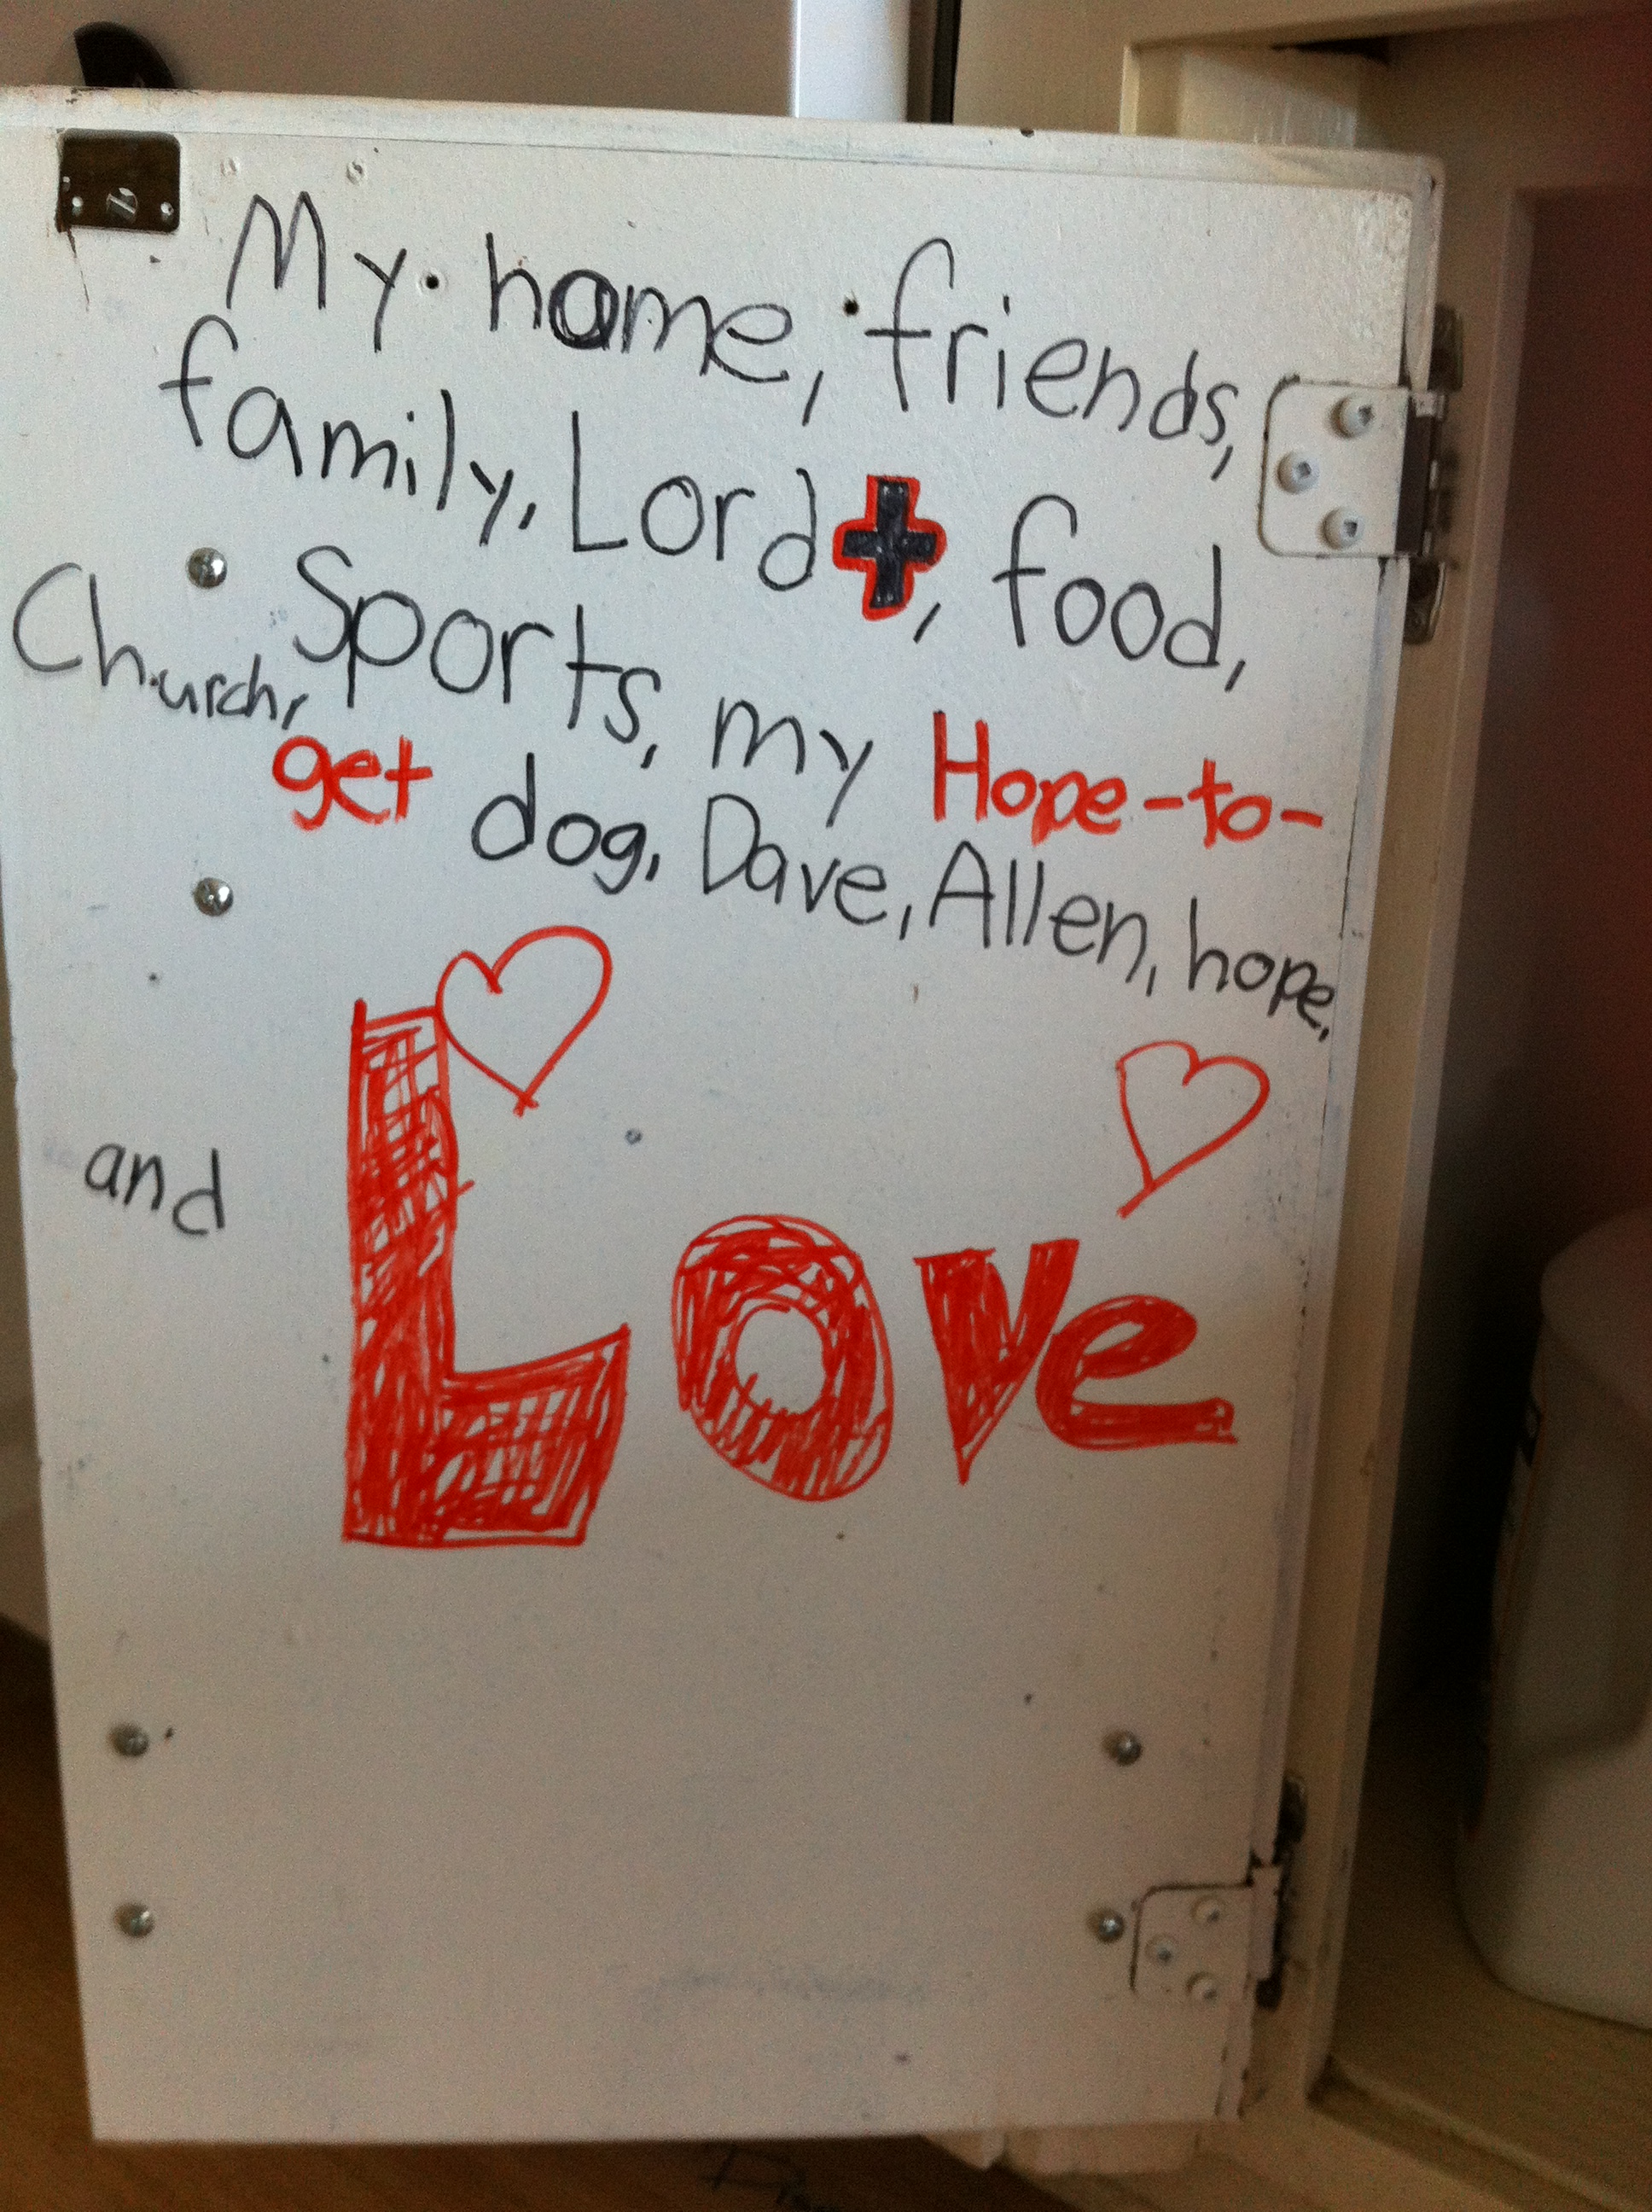 My home, friends,
family, Lord, food,
Church, Sports, my Hope-to-
get dog, Dave, Allen, hope,
and Love